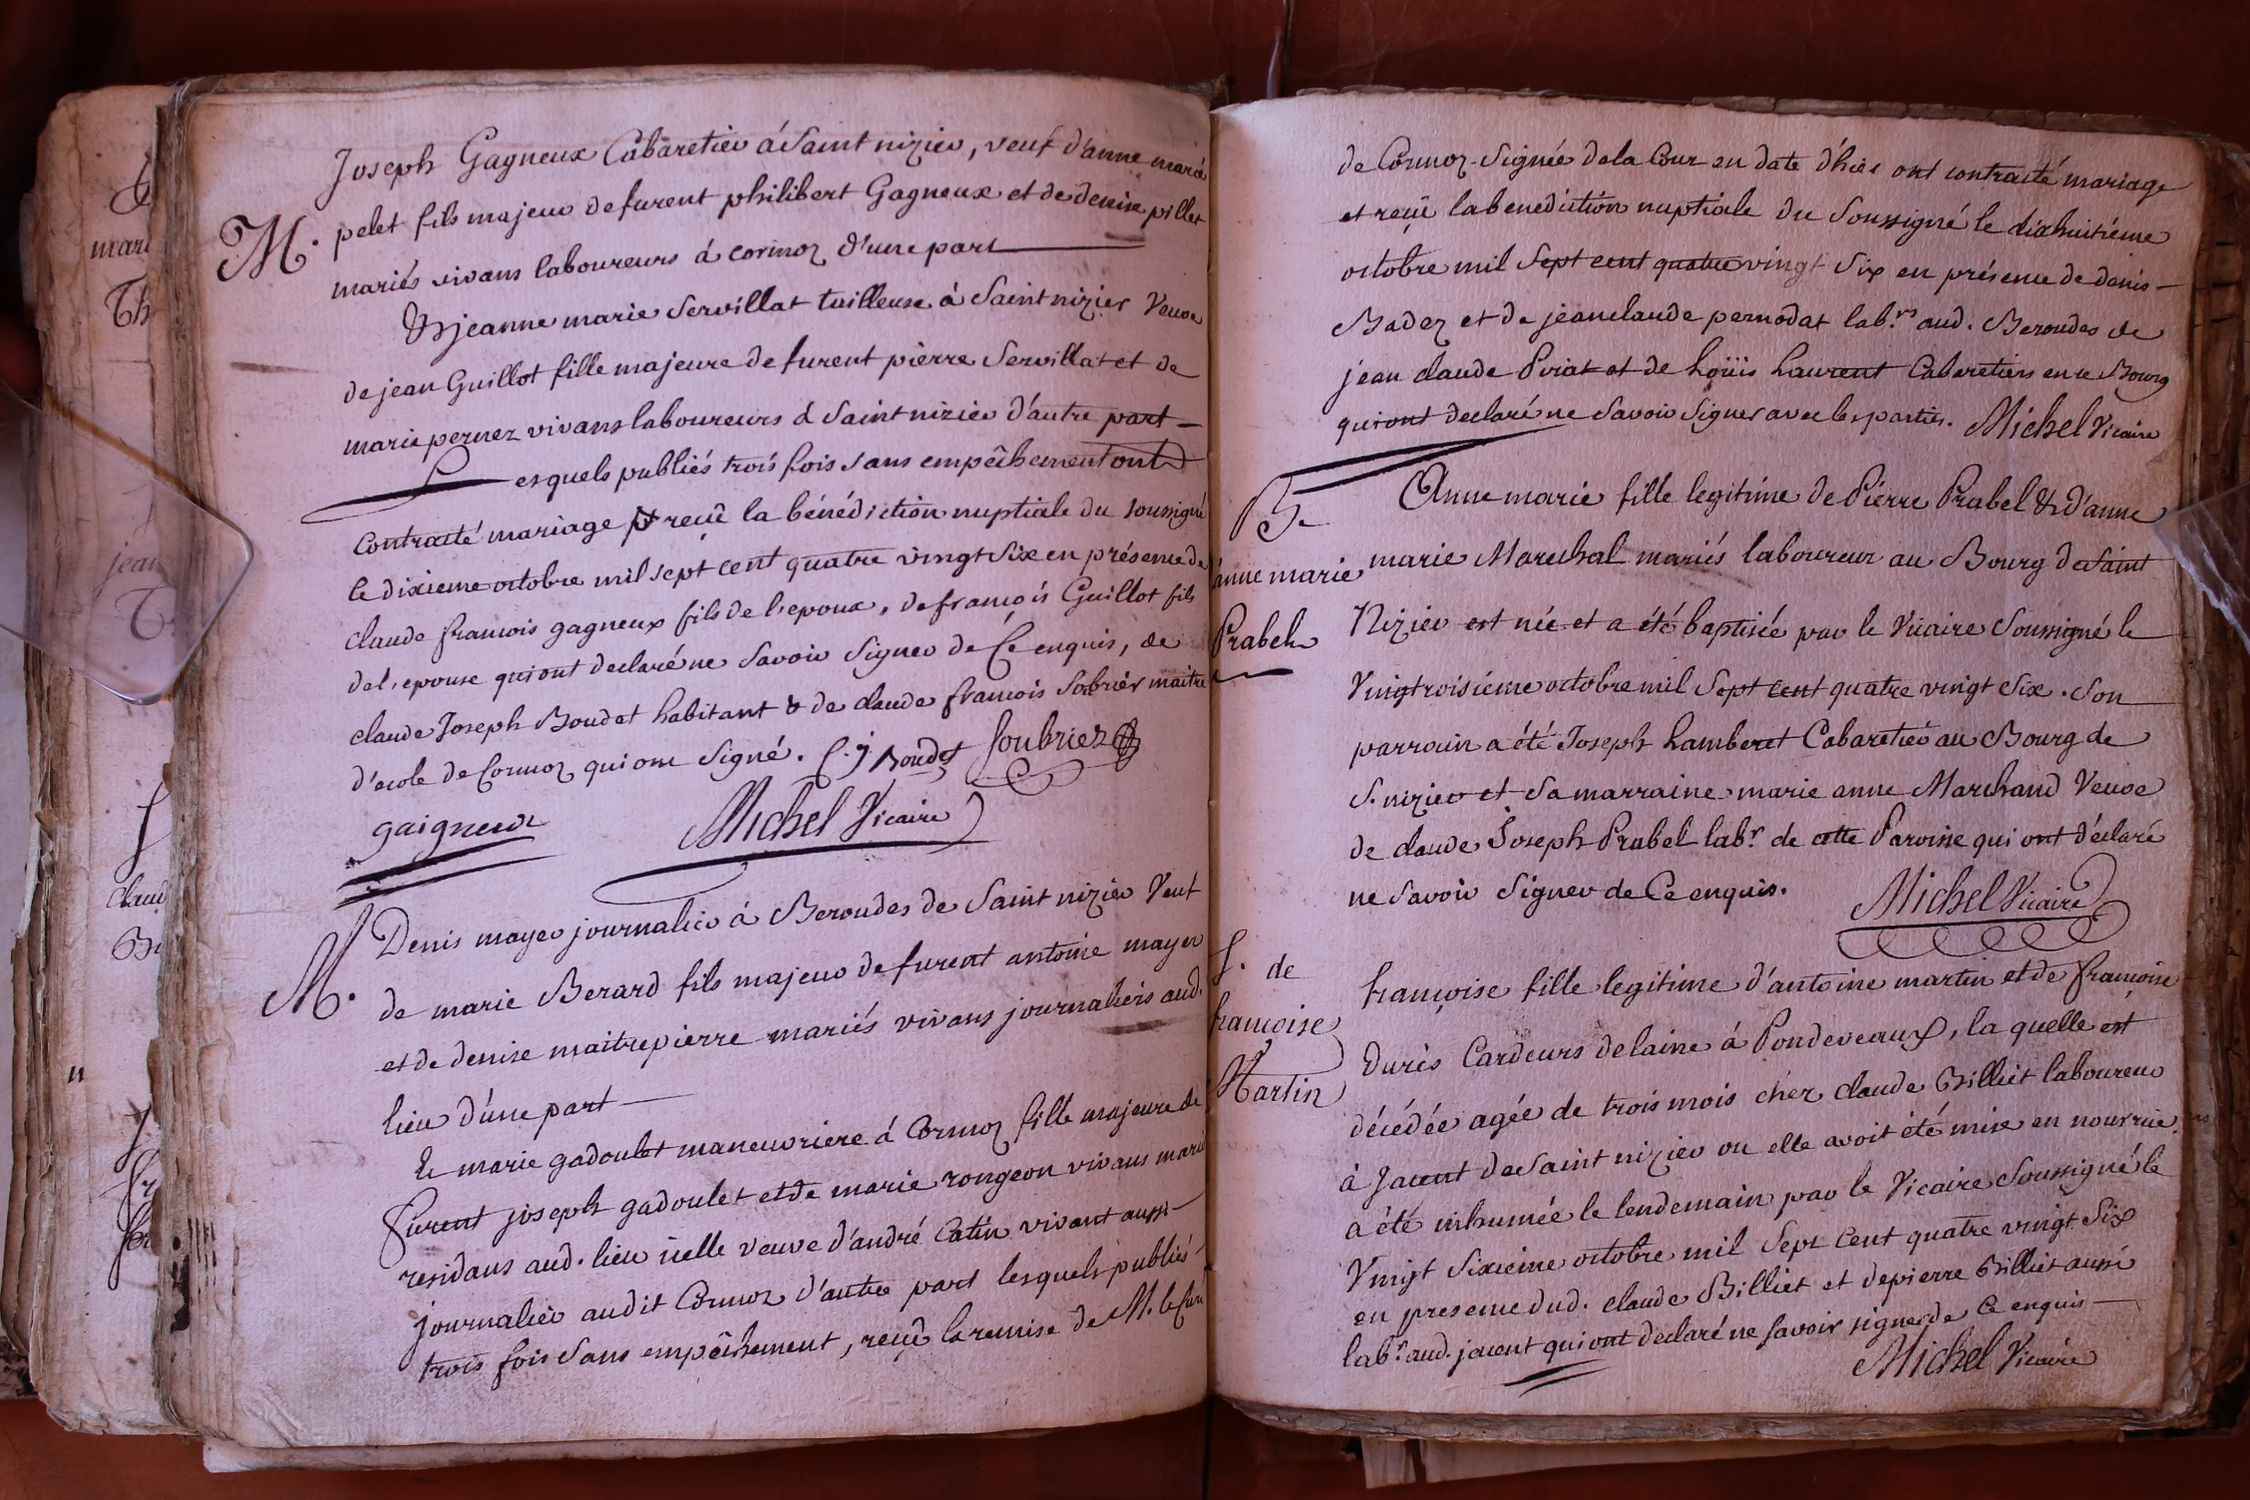 Joseph Gagneux Cabaretier á Saint nizier, veuf d'anne marie
M. pelet fils majeur defurent philibert Gagneux et de denise pillet
mariés vivans laboureurs á cormoz d'une part
Et jeanne marie Servillat tailleuse á Saint nizier Veuve
de jean Guillot fille majeure de furent pierre Servillat et de
marie pernez vivans laboureurs á Saint nizier d'autre part
Lesquels publiés trois fois sans empêchement ont
contracté mariage et reçû la bénédiction nuptiale du soussigné
le dixieme octobre mil sept cent quatre vingt six en présence de
claude francois gagneux fils de l'epoux, de françois Guillot fils
de l'epouse qui ont declaré ne savoir signer de Ce enquis, de
claude Joseph Boudet habitant & de claude francois Sobrier maitre
d'ecole de Cormoz qui ont signé. C. j Boudet Soubriez
gaigneux Michel Vicaire
Denis mayer journalier á Beroudes de Saint nizier Veuf
M. de marie Berard fils majeur defurent antoine mayer
et de denise maitrepierre mariés vivans journaliers aud.
lieu d'une part
Et marie gadoulet maneuvriere á Cormoz fille majeure de
furent joseph gadoulet et de marie rongeon vivans mariés
residans aud. lieu icelle veuve d'andré Catin vivant aussi
journalier audit Cormoz d'autre part lesquels publiés
trois fois sans empêchement, reçû la remise de M. le Curé
de Cormoz Signée dela Cour en date d'hier ont contracté mariage
et reçû la benediction nuptiale du Soussigné le dixhuitiéme
octobre mil Sept cent quatre vingt Six en présence de denis
Badez et de jean claude pernodat lab.rs aud. Beroudes de
jean claude Poiat et de Loüis Laurent Cabaretiers en ce Bourg
qui ont declaré ne Savoir Signer avec les parties. Michel Vicaire
B. Anne marie fille legitime de Piérre Prabel & d'anne
anne marie marie Marechal mariés laboureur au Bourg de Saint
Prabel Nizier est née et a été baptisée par le Vicaire Soussigné le
Vingtroisiéme octobre mil Sept cent quatre vingt Six. Son
parrain a été Joseph Lambert Cabaretier au Bourg de
S. nizier et Sa marraine marie anne Marchand Veuve
de claude Joseph Prabel lab.r de cette Paroisse qui ont déclaré
ne Savoir Signer de Ce enquis. Michel Vicaire
S. de francoise fille legitime d'antoine martin et de francoise
francoise Durès Cardeurs de laine á Pondeveaux, la quelle est
Martin décédée agée de trois mois chez claude Billiet laboureur
á Jacent de Saint nizier ou elle avoit été mise en nourrice.
a été inhumée le lendemain par le Vicaire Soussigné le
Vingt Sixieme octobre mil Sept Cent quatre vingt Six
en presence dud. claude Billiet et de pierre Billiet aussi
lab.r aud. jacent qui ont declaré ne savoir signer de Ce enquis
Michel Vicaire